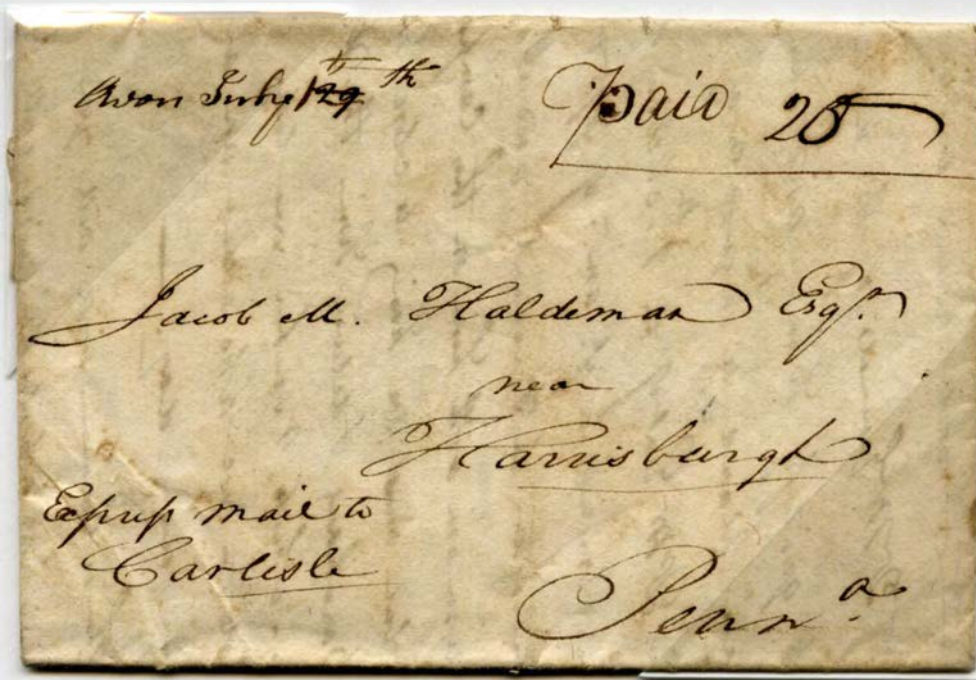 Avon July 12th
Paid 25
Jacob M. Haldeman Esqr.
near
Harrisburgh
Express mail to
Carlisle
Penna.